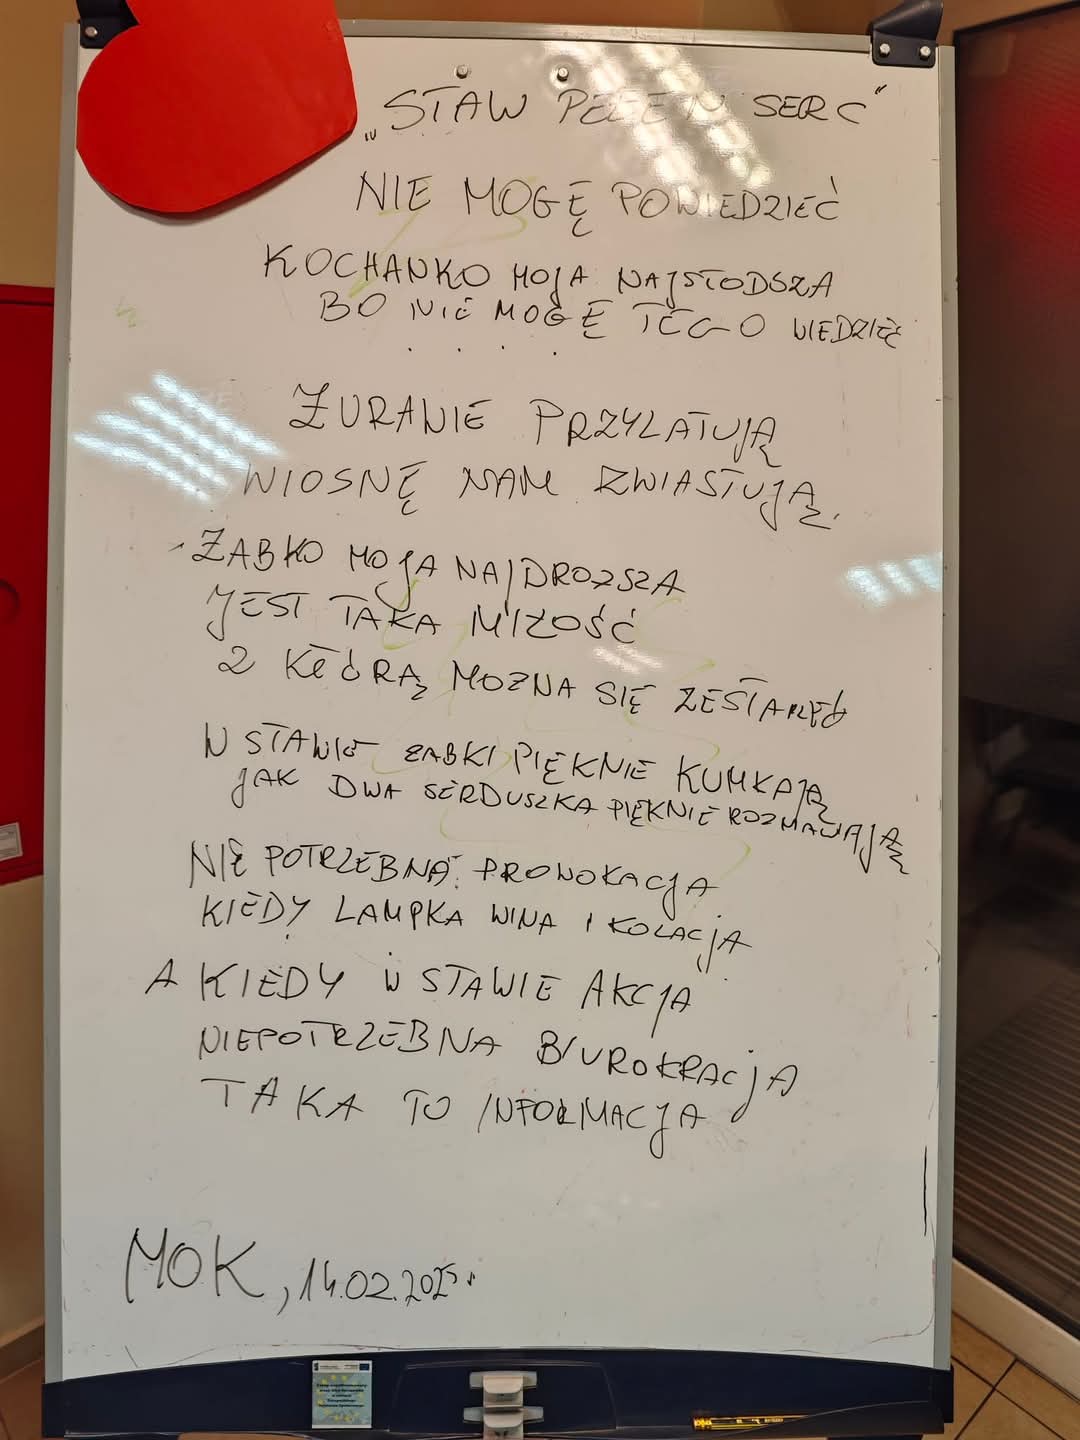 „STAW PEŁEN SERC"
NIE MOGĘ POWIEDZIEĆ
KOCHANKO MOJA NAJSŁODSZA
BO NIE MOGĘ TEGO WIEDZIEĆ
. . . .
ŻURAWIE PRZYLATUJĄ
WIOSNĘ NAM ZWIASTUJĄ.
ŻABKO MOJA NAJDROŻSZA
JEST TAKA MIŁOŚĆ
Z KTÓRĄ MOZNA SIĘ ZESTARZEĆ
W STAWIE ŻABKI PIĘKNIE KUMKAJĄ
JAK DWA SERDUSZKA PIĘKNIE ROZMAWIAJĄ
NIE POTRZEBNA PROWOKACJA
KIEDY LAMPKA WINA I KOLACJA
A KIEDY W STAWIE AKCJA
NIEPOTRZEBNA BIUROKRACJA
TAKA TO INFORMACJA
MOK, 14.02.2025r.